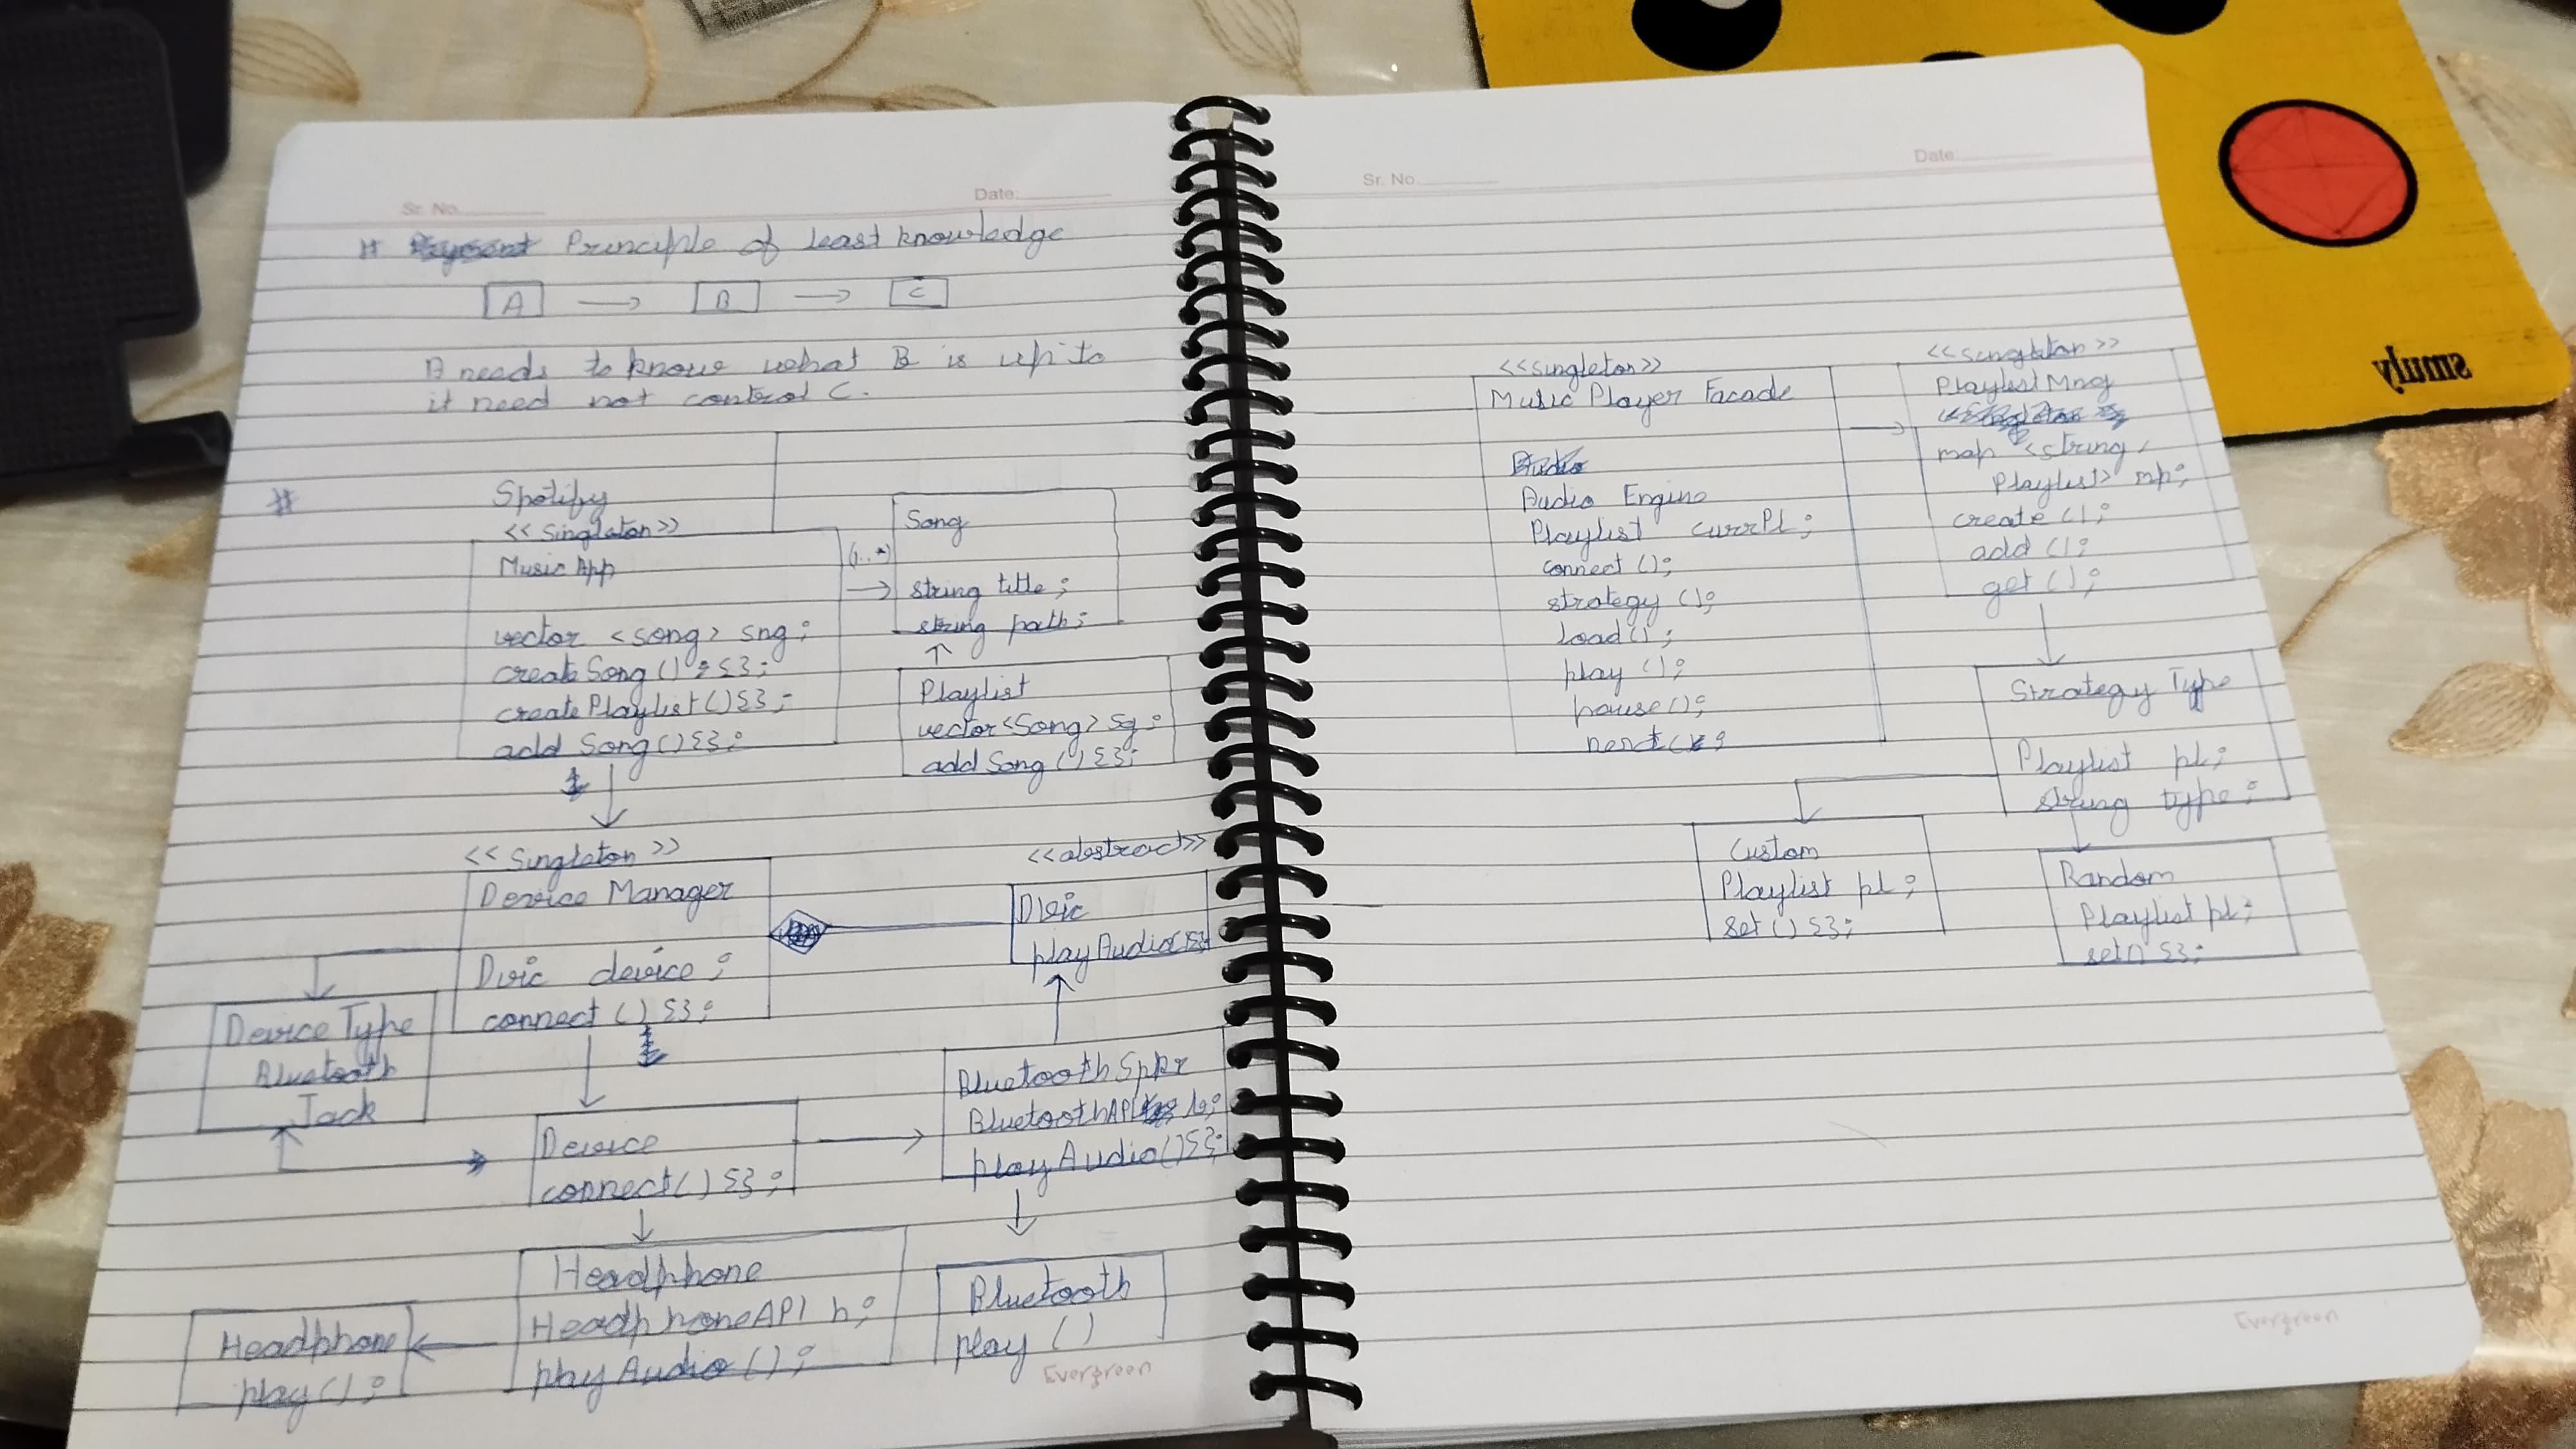 Sr. No.
Date:
# Principle of least knowledge
A → B → C
A needs to know what B is up to
it need not control C.
# Spotify
<< Singleton >>
Music App
vector <song> sng;
create Song () ; {};
create Playlist () {};
add Song () {};
(1..*)
Song
string title ;
string path ;
Playlist
vector<Song> sg ;
add Song () {};
<< Singleton >>
Device Manager
Divic device ;
connect () {};
<<abstract>>
Divic
play Audio() {}
Device Type
Bluetooth
Jack
Device
connect() {} ;
Bluetooth Spkr
BluetoothAPI b;
play Audio() {};
Headphone
HeadphoneAPI h;
play Audio () ;
Headphone
play () ;
Bluetooth
play ()
Evergreen
Sr. No.
Date:
<<singleton>>
Music Player Facade
Audio Engine
Playlist currPl ;
connect ();
strategy ();
load();
play ();
pause();
next();
<<singleton>>
Playlist Mng
map <string,
Playlist> mp;
create ();
add ();
get ();
Strategy Type
Playlist pl;
string type ;
Custom
Playlist pl ;
set () {};
Random
Playlist pl;
set() {};
Evergreen
smily